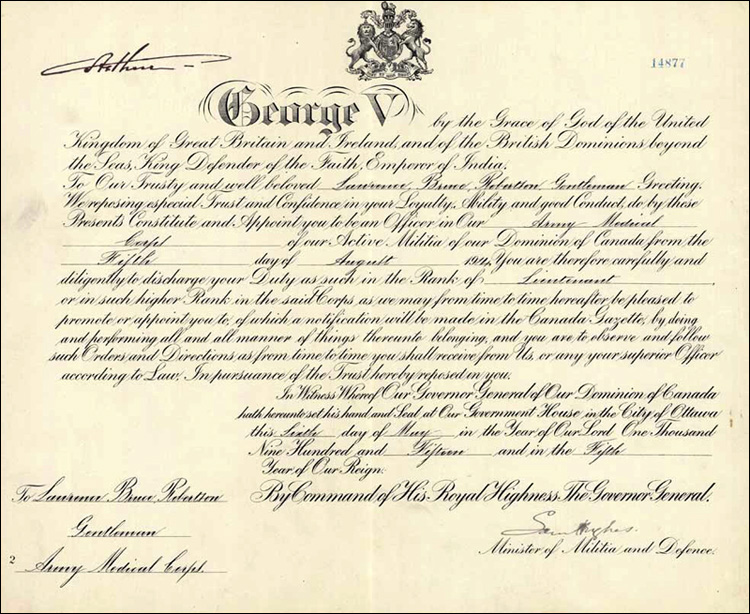 Arthur
14877
George V by the Grace of God of the United
Kingdom of Great Britain and Ireland, and of the British Dominions beyond
the Seas, King Defender of the Faith, Emperor of India.
To Our Trusty and well beloved Lawrence Bruce Robertson Gentleman Greeting.
We reposing especial Trust and Confidence in your Loyalty, Ability and good Conduct, do by these
Presents Constitute and Appoint you to be an Officer in Our Army Medical
Corps of our Active Militia of our Dominion of Canada from the
Fifth day of August 1914 You are therefore carefully and
diligently to discharge your Duty as such in the Rank of Lieutenant
or in such higher Rank in the said Corps as we may from time to time hereafter be pleased to
promote or appoint you to, of which a notification will be made in the Canada Gazette, by doing
and performing all and all manner of things thereunto belonging, and you are to observe and follow
such Orders and Directions as from time to time you shall receive from Us, or any your superior Officer
according to Law, In pursuance of the Trust hereby reposed in you.
In Witness Whereof Our Governor General of Our Dominion of Canada
hath hereunto set his hand and Seal at Our Government House in the City of Ottawa
this Sixth day of May in the Year of Our Lord One Thousand
Nine Hundred and Fifteen and in the Fifth
Year of Our Reign.
By Command of His Royal Highness The Governor General.
To Lawrence Bruce Robertson
Gentleman
2 Army Medical Corps.
Sam Hughes.
Minister of Militia and Defence.